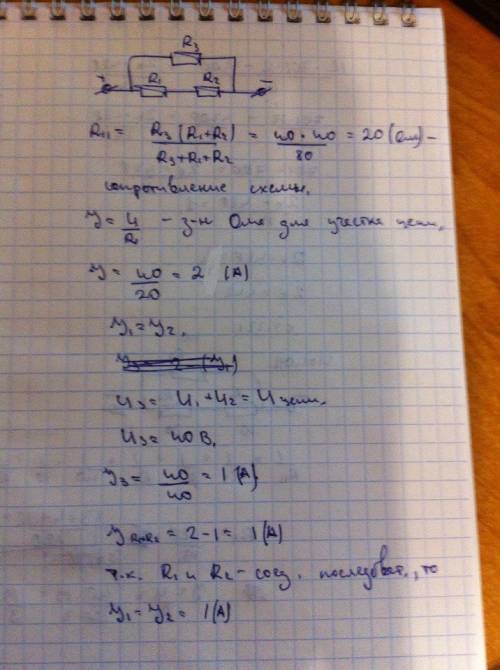 R3
+ R1 R2 −
R11 = R3 (R1+R2) / R3+R1+R2 = 40 · 40 / 80 = 20 (Ом) –
сопротивление схемы.
У = U / R – з-н Ома для участка цепи.
У = 40 / 20 = 2 (А)
У1 = У2.
U3 = U1 + U2 = U цепи.
U3 = 40 В.
У3 = 40 / 40 = 1 (А)
У R1+R2 = 2 – 1 = 1 (А)
т.к. R1 и R2 – соед. последоват., то
У1 = У2 = 1 (А)